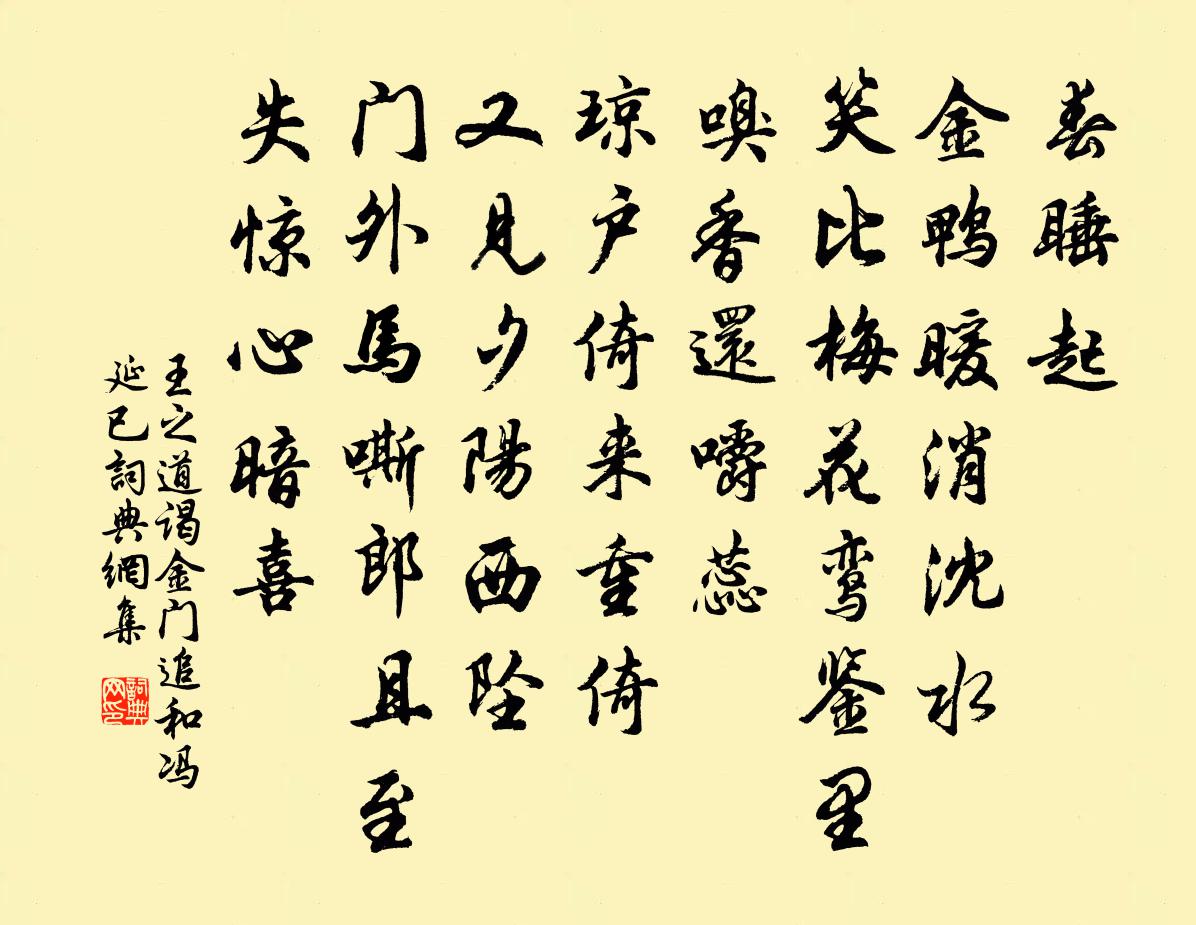 春睡起
金鸭暖消沈水
笑比梅花鸾鉴里
嗅香還嚼蕊
琼户倚来重倚
又见夕陽西坠
门外馬嘶郎且至
失惊心暗喜
王之道谒金门追和冯
延巳詞典網集
詞典
网印